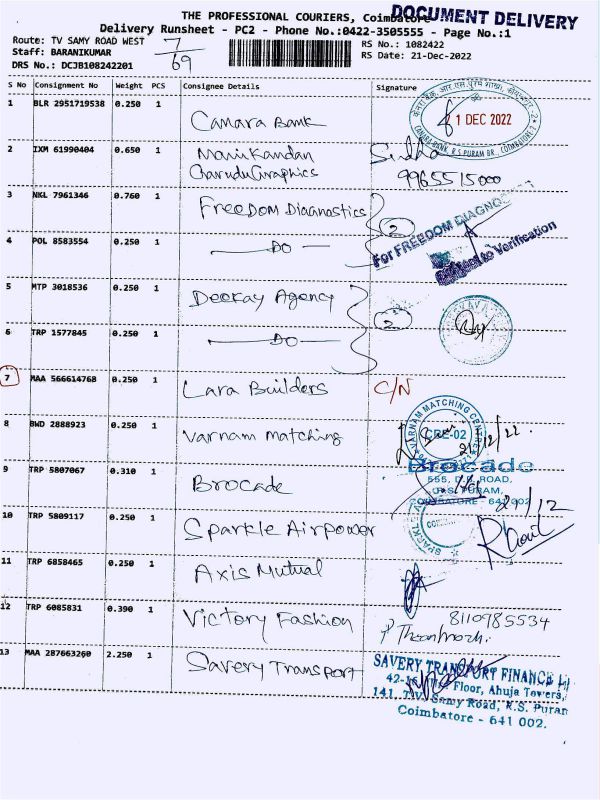 THE PROFESSIONAL COURIERS, Coimbatore
DOCUMENT DELIVERY
Delivery Runsheet - PC2 - Phone No.:0422-3505555 - Page No.:1
Route: TV SAMY ROAD WEST 7/69 RS No.: 1082422
Staff: BARANIKUMAR RS Date: 21-Dec-2022
DRS No.: DCJB108242201
S No Consignment No Weight PCS Consignee Details Signature
1 BLR 2951719538 0.250 1 Canara Bank
21 DEC 2022
CANARA BANK, R.S PURAM BR, COIMBATORE-2
2 IXM 61990404 0.650 1 Manikandan
Charudu Graphics
9965515000
3 NKL 7961346 0.760 1 FreeDom Diagnostics 2
For FREEDOM DIAGNOSTICS
4 POL 8583554 0.250 1 DO
Subject to Verification
5 MTP 3018536 0.250 1 Deekay Agency 2
6 TRP 1577845 0.250 1 DO
7 MAA 566614768 0.250 1 Lara Builders C/N
8 BWD 2888923 0.250 1 Varnam Matching
VARNAM MATCHING CENTRE
CBE-02
21/12/22
9 TRP 5807067 0.310 1 Brocade
Brocade
555, D.B. ROAD,
R.S. PURAM,
COIMBATORE - 641 002
21/12
10 TRP 5809117 0.250 1 Sparkle Airpower
11 TRP 6858465 0.250 1 Axis Mutual
12 TRP 6085831 0.390 1 Victory Fashion 8110985534
13 MAA 287663260 2.250 1 Savery Transport
SAVERY TRANSPORT FINANCE
Floor, Ahuja Towers,
141, T.V. Samy Road, R.S. Puram
Coimbatore - 641 002.